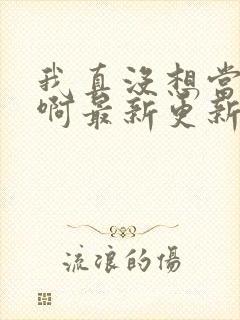 我真没想当
啊最新更新
流浪的傷